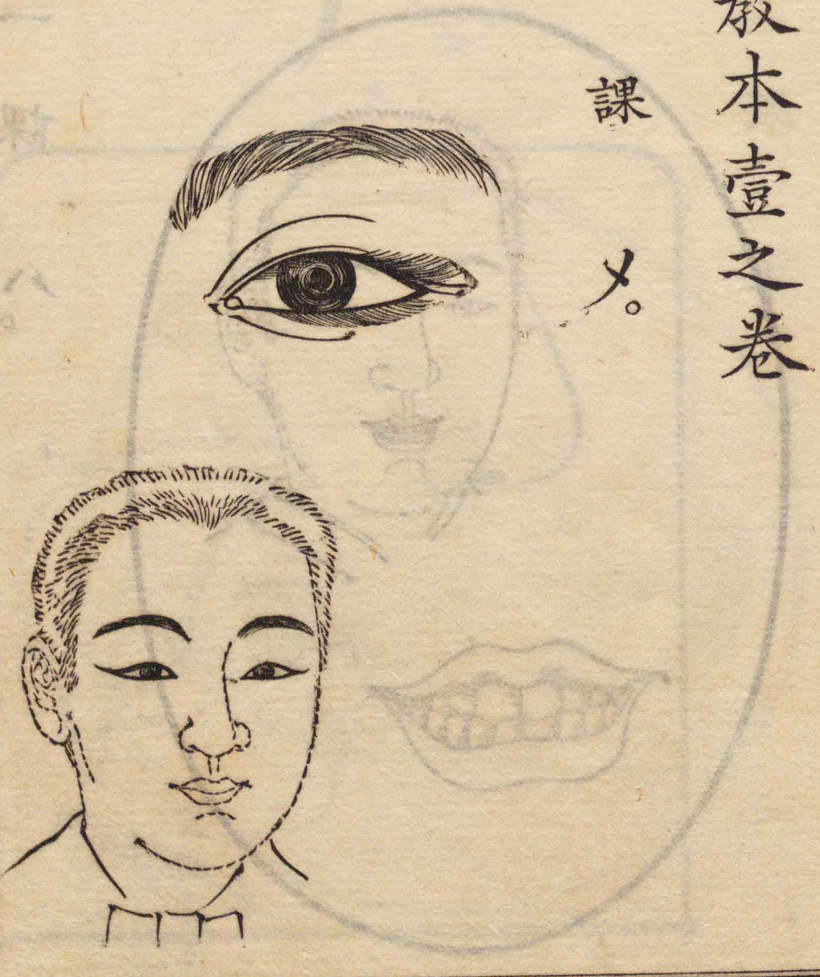 教本壹之卷
課
メ。